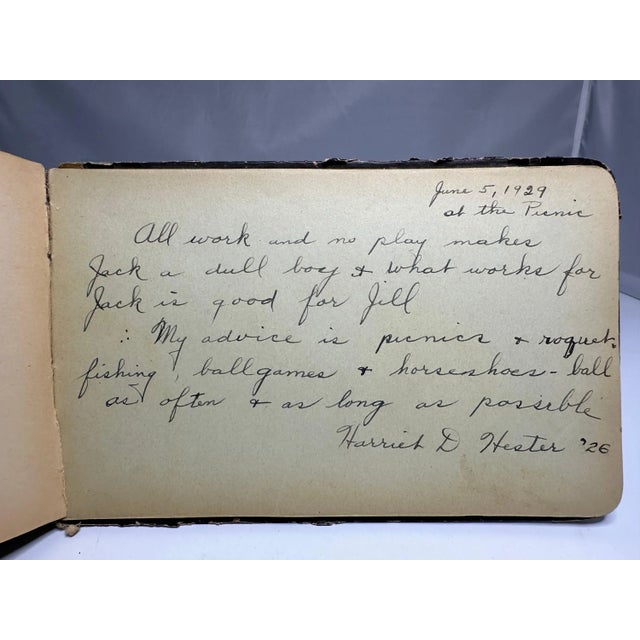 June 5, 1929
at the Picnic
All work and no play makes
Jack a dull boy & what works for
Jack is good for Jill
∴ My advice is picnics & roquet-
fishing, ballgames & horseshoes - ball
as often & as long as possible
Harriet D Hester '26